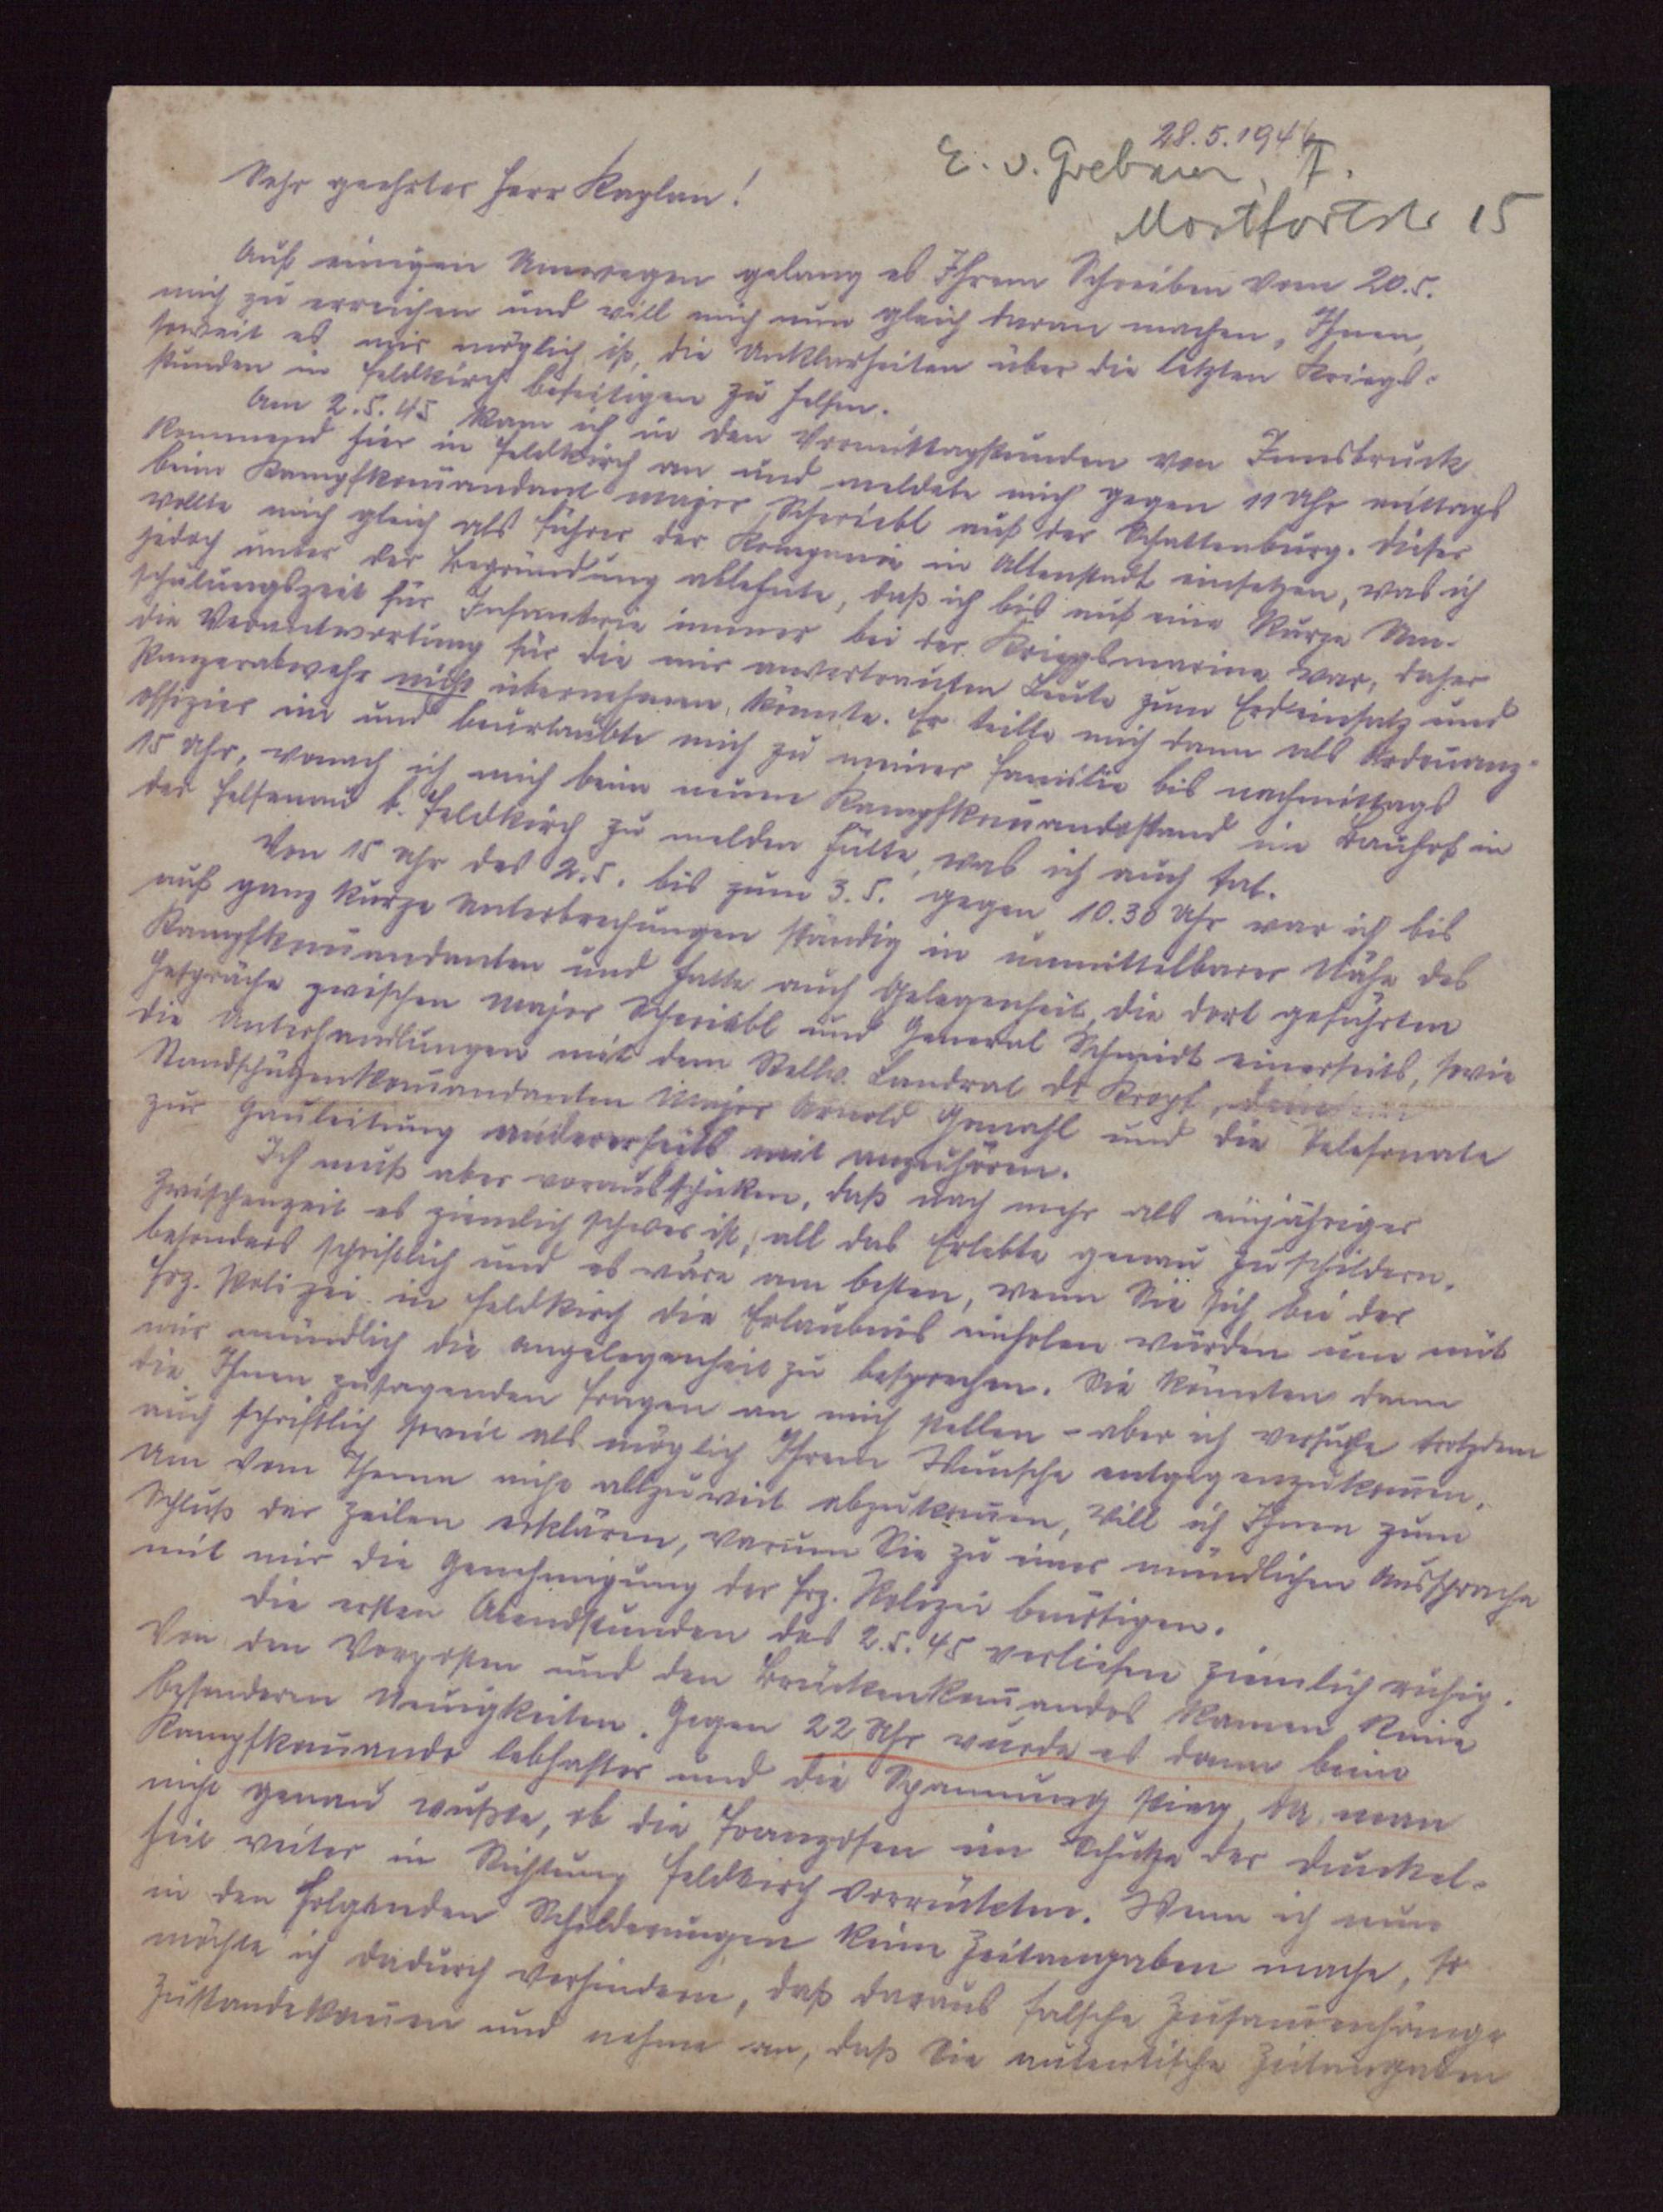 28.5.1946
E. v. Grebmer, F.
Montfortstr 15
Sehr geehrter Herr Kaplan!
Auf einigen Umwegen gelang es Ihrem Schreiben vom 20.5.
mich zu erreichen und will mich nun gleich daran machen, Ihnen,
soweit es mir möglich ist, die Unklarheiten über die letzten Kriegs-
stunden in Feldkirch beseitigen zu helfen.
Am 2.5.45 kam ich in den Vormittagstunden von Innsbruck
kommend hier in Feldkirch an und meldete mich gegen 11 Uhr mittags
beim Kampfkom̄andant Major Scheriebl auf der Schattenburg. Dieser
wollte mich gleich als Führer der Kompanie in Altenstadt einsetzen, was ich
jedoch unter der Begründung ablehnte, daß ich bis auf eine kurze Um-
schulungszeit für Infanterie immer bei der Kriegsmarine war, daher
die Verantwortung für die mir anvertrauten Leute zum Erdeinsatz und
Panzerabwehr nicht übernehmen könnte. Er teilte mich dann als Ordonanz-
offizier ein und beurlaubte mich zu meiner Familie bis nachmittags
15 Uhr, wonach ich mich beim neuen Kampfkom̄andostand im Bauhof in
der Felsenau b. Feldkirch zu melden hätte, was ich auch tat.
Von 15 Uhr des 2.5. bis zum 3.5. gegen 10.30 Uhr war ich bis
auf ganz kurze Unterbrechungen ständig in unmittelbarer Nähe des
Kampfkom̄andanten und hatte auch Gelegenheit, die dort geführten
Gespräche zwischen Major Scheriebl und General Schmidt einerseits, sowie
die Unterhandlungen mit dem Stellv. Landrat Dr Kropf,
Standschützenkom̄andanten Major Arnold Ganahl und die Telefonate
zur Gauleitung andererseits mit anzuhören.
Ich muß aber vorausschicken, daß nach mehr als einjähriger
Zwischenzeit es ziemlich schwer ist, all das Erlebte genau zu schildern,
besonders schriftlich und es wäre am besten, wenn Sie sich bei der
frz. Polizei in Feldkirch die Erlaubnis einholen würden um mit
mir mündlich die Angelegenheit zu besprechen. Sie könnten dann
die Ihnen zusagenden Fragen an mich stellen - aber ich versuche trotzdem
auch schriftlich soweit als möglich Ihrem Wunsche entgegenzukom̄en.
Um vom Thema nicht allzuweit abzukom̄en, will ich Ihnen zum
Schluß der Zeilen erklären, warum Sie zu einer mündlichen Aussprache
mit mir die Genehmigung der frz. Polizei benötigen.
Die ersten Abendstunden des 2.5.45 verliefen ziemlich ruhig.
Von den Vorposten und den Brückenkom̄andos kamen keine
besonderen Neuigkeiten. Gegen 22 Uhr wurde es dann beim
Kampfkom̄ando lebhafter und die Spannung stieg, da man
nicht genau wußte, ob die Franzosen im Schutze der Dunkel-
heit weiter in Richtung Feldkirch vorrückten. Wenn ich nun
in den folgenden Schilderungen keine Zeitangaben mache, so
möchte ich dadurch verhindern, daß daraus falsche Zusam̄enhänge
zustandekom̄en und nehme an, daß Sie autentische Zeitangaben